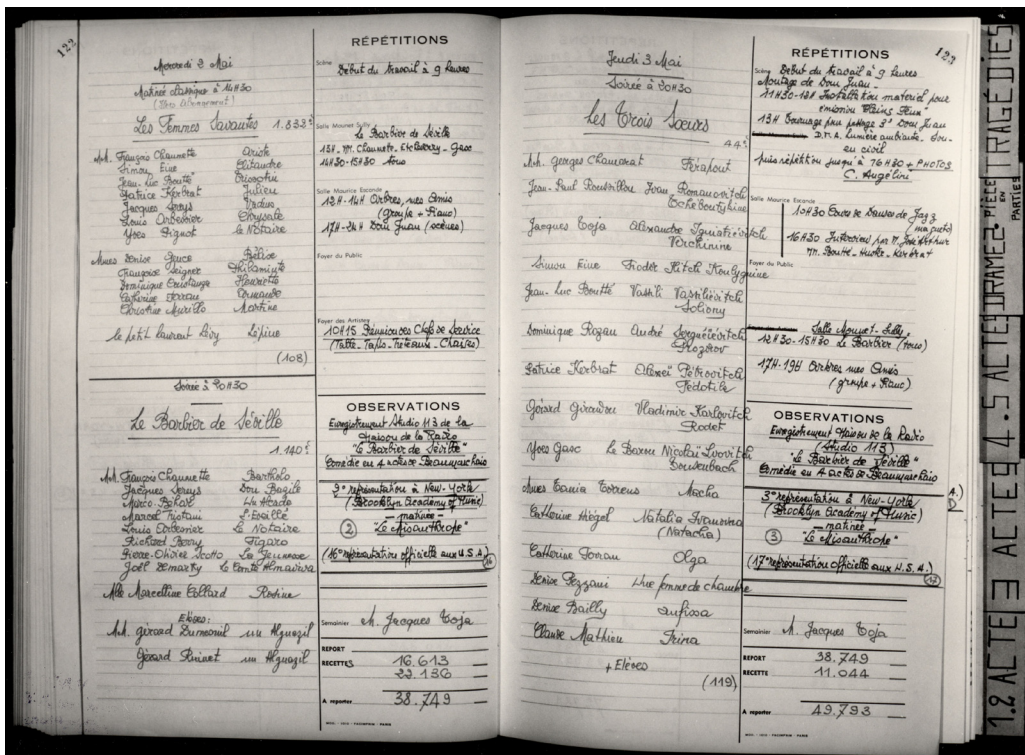 122
Mercredi 2 Mai
Matinée classique à 14H30
Les Femmes Savantes 1.833e
MM. François Chaumette Ariste
Simon Eine Clitandre
Jean-Luc Boutté Trissotin
Patrice Kerbrat
Jacques Sereys Vadius
Louis Arbessier Chrysale
Yves Pignot le Notaire
Mmes Denise Gence Bélise
Françoise Seigner Philaminte
Dominique Constanza Henriette
Catherine Ferran Armande
Christine Murillo Martine
le petit Laurent Lévy Lépine
(108)
Soirée à 20H30
Le Barbier de Séville
1.140e
MM. François Chaumette Bartholo
Jacques Sereys Don Bazile
Marco-Béhar Un Alcade
Marcel Tristani L'Eveillé
Louis Arbessier Le Notaire
Richard Berry Figaro
Pierre-Olivier Scotto La Jeunesse
Joël Demarty Le Comte Almaviva
Mlle Marcelline Collard Rosine
Elèves:
MM. Gérard Dumesnil un Alguazil
Gérard Ruinet un Alguazil
RÉPÉTITIONS
Scène
Début du travail à 9 heures
Salle Mounet-Sully
Le Barbier de Séville
13H. MM. Chaumette. Etcheverry. Gasc
14H30-15H30 tous
Salle Maurice Escande
12H-14H Arbres, mes Amis
(groupe + Piano)
17H-21H Dom Juan (scènes)
Foyer du Public
Foyer des Artistes
10H15 Réunion des Chefs de Service
(Table-Tapis-Tréteaux-Chaises)
OBSERVATIONS
Enregistrement Studio 113 de la
Maison de la Radio
"Le Barbier de Séville"
Comédie en 4 actes de Beaumarchais
2e représentation à New-York
(Brooklyn Academy of Music)
— matinée —
② "Le Misanthrope"
(16e représentation officielle aux U.S.A.)
16
Semainier M. Jacques Toja
REPORT
RECETTES 16.613
22.136
A reporter 38.749
122
Jeudi 3 Mai
Soirée à 20H30
Les Trois Sœurs
44e
MM. Georges Chamarat Férapont
Jean-Paul Roussillon Ivan Romanovitch
Tcheboutykine
Jacques Toja Alexandre Ignatiévitch
Verchinine
Simon Eine Fiodor Ilitch Koulyguine
Jean-Luc Boutté Vassili Vassiliévitch
Soliony
Dominique Rozan André Sergueïevitch
Prozorov
Patrice Kerbrat Alexeï Pétrovitch
Fédotik
Gérard Giroudon Vladimir Karlovitch
Rodet
Yves Gasc Le Baron Nicolaï Lvovitch
Touzenbach
Mmes Tania Torrens Macha
Catherine Hiégel Natalia Ivanovna
(Natacha)
Catherine Ferran Olga
Denise Pezzani Une femme de chambre
Denise Bailly Anfissa
Claude Mathieu Irina
+ Elèves
(119)
RÉPÉTITIONS
Scène
Début du travail à 9 heures
Montage de Dom Juan
11H30-12H Installation matériel pour
émission Pleins Feux
13H pour passage 3e Dom Juan
D.M.A. Lumière ambiante. Son
en civil
puis répétition jusqu'à 16H30 + PHOTOS
C. Angelini
Salle Maurice Escande
10H30 Cours de Danses de Jazz
16H30 Interview par M. José Arthur
MM. Boutté - Huster - Kerbrat
Foyer du Public
Salle Mounet-Sully
12H30-15H30 Le Barbier (tous)
17H-19H Arbres mes Amis
(groupe + Piano)
OBSERVATIONS
Enregistrement Maison de la Radio
(Studio 113)
"Le Barbier de Séville"
Comédie en 4 actes de Beaumarchais
3e représentation à New-York
(Brooklyn Academy of Music)
— matinée —
③ "Le Misanthrope"
(17e représentation officielle aux U.S.A.)
17
Semainier M. Jacques Toja
REPORT 38.749
RECETTE 11.044
A reporter 49.793
1.2 ACTE
3 ACTES
4.5 ACTES
DRAMES
PIÈCE
EN
PARTIES
TRAGÉDIES